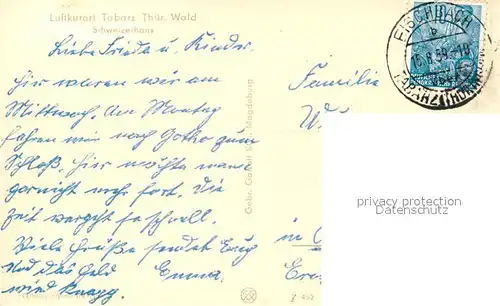 Luftkurort Tabarz Thür. Wald
Schweizerhaus
Liebe Frieda u. Kinder.
Hier waren wir am
Mittwoch. Am Montag
fahren wir nach Gotha zum
Schloß. Hier möchte man
garnicht mehr fort. Die
Zeit vergeht so schnell.
Viele Grüße sendet Euch
Und das Geld Emma.
wird knapp.
Gebr. Garloff KG. Magdeburg
Familie
W.
in
FISCHBACH
b
16.8.59
privacy protection
Datenschutz